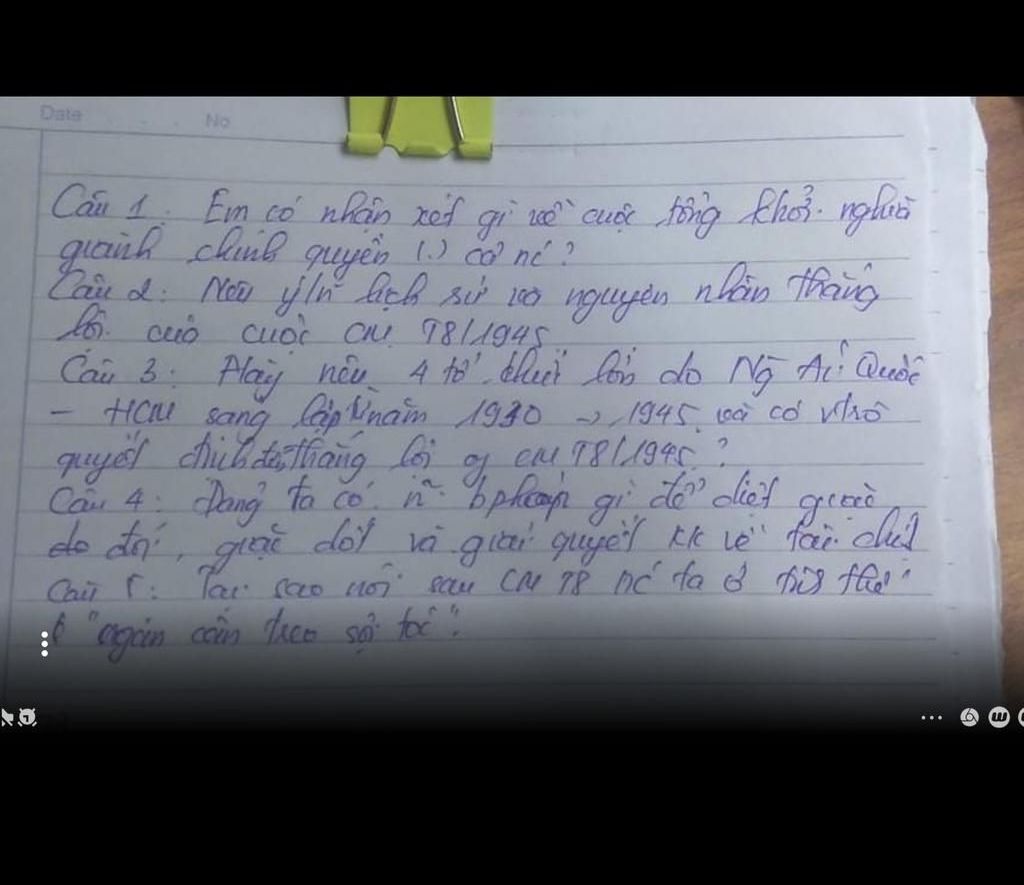 Date No
Câu 1. Em có nhận xét gì về cuộc tổng khởi nghĩa
giành chính quyền (.) cả nc?
Câu 2: Nêu ý/n lịch sử và nguyên nhân thắng
lợi của cuộc CM T8/1945
Câu 3: Hãy nêu 4 tổ chức lớn do Ng Ái Quốc
- HCM sáng lập từ năm 1930 -> 1945 và có vtrò
quyết định đến thắng lợi of CM T8/1945?
Câu 4: Đảng ta có n~ bpháp gì để diệt giặc
do đói, giặc dốt và giải quyết kk về tài chính
Câu 5: Tại sao nói sau CM T8 nc ta ở tình thế
"ngàn cân treo sợi tóc".